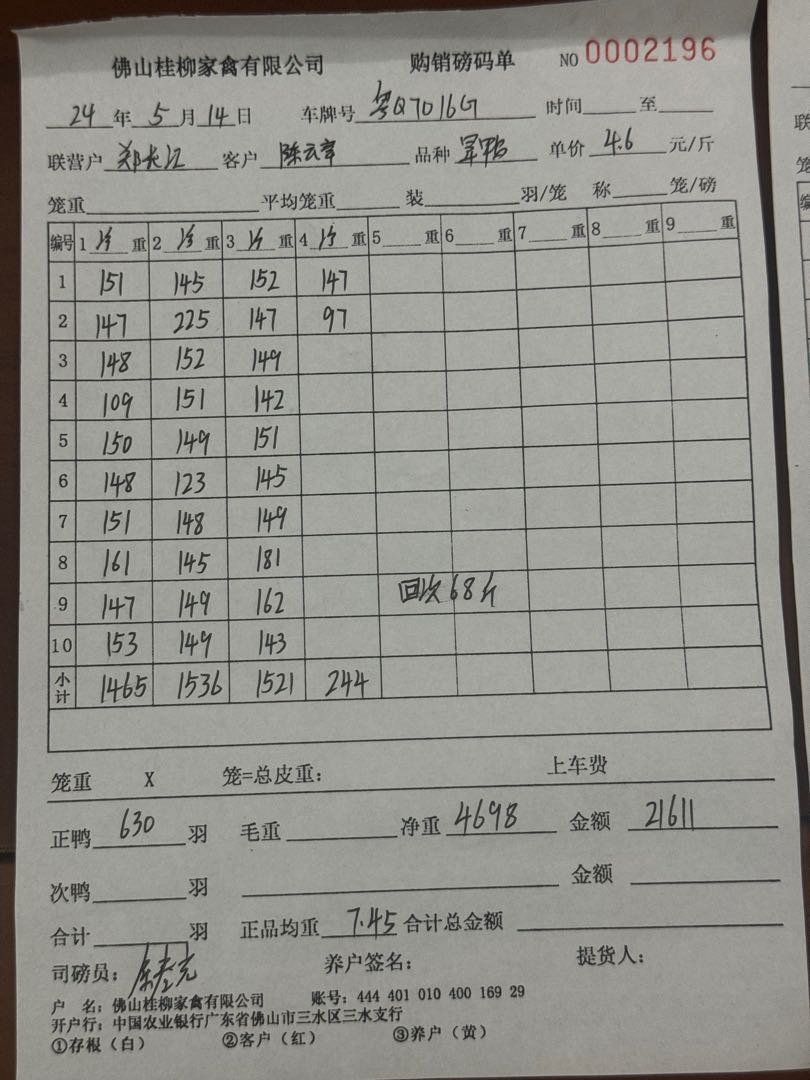 佛山桂柳家禽有限公司 购销磅码单 NO 0002196
24 年 5 月 14 日 车牌号 粤Q7016G 时间 至
联营户 郑长江 客户 陈云章 品种 旱鸭 单价 4.6 元/斤
笼重 平均笼重 装 羽/笼 称 笼/磅
编号 1 净 重 2 净 重 3 净 重 4 净 重 5 重 6 重 7 重 8 重 9 重
1 151 145 152 147
2 147 225 147 97
3 148 152 149
4 109 151 142
5 150 149 151
6 148 123 145
7 151 148 149
8 161 145 181
9 147 149 162 回次68斤
10 153 149 143
小计 1465 1536 1521 244
笼重 X 笼=总皮重: 上车费
正鸭 630 羽 毛重 净重 4698 金额 21611
次鸭 羽 金额
合计 羽 正品均重 7.45 合计总金额
司磅员: 养户签名: 提货人:
户 名: 佛山桂柳家禽有限公司 账号: 444 401 010 400 169 29
开户行: 中国农业银行广东省佛山市三水区三水支行
①存根(白) ②客户(红) ③养户(黄)